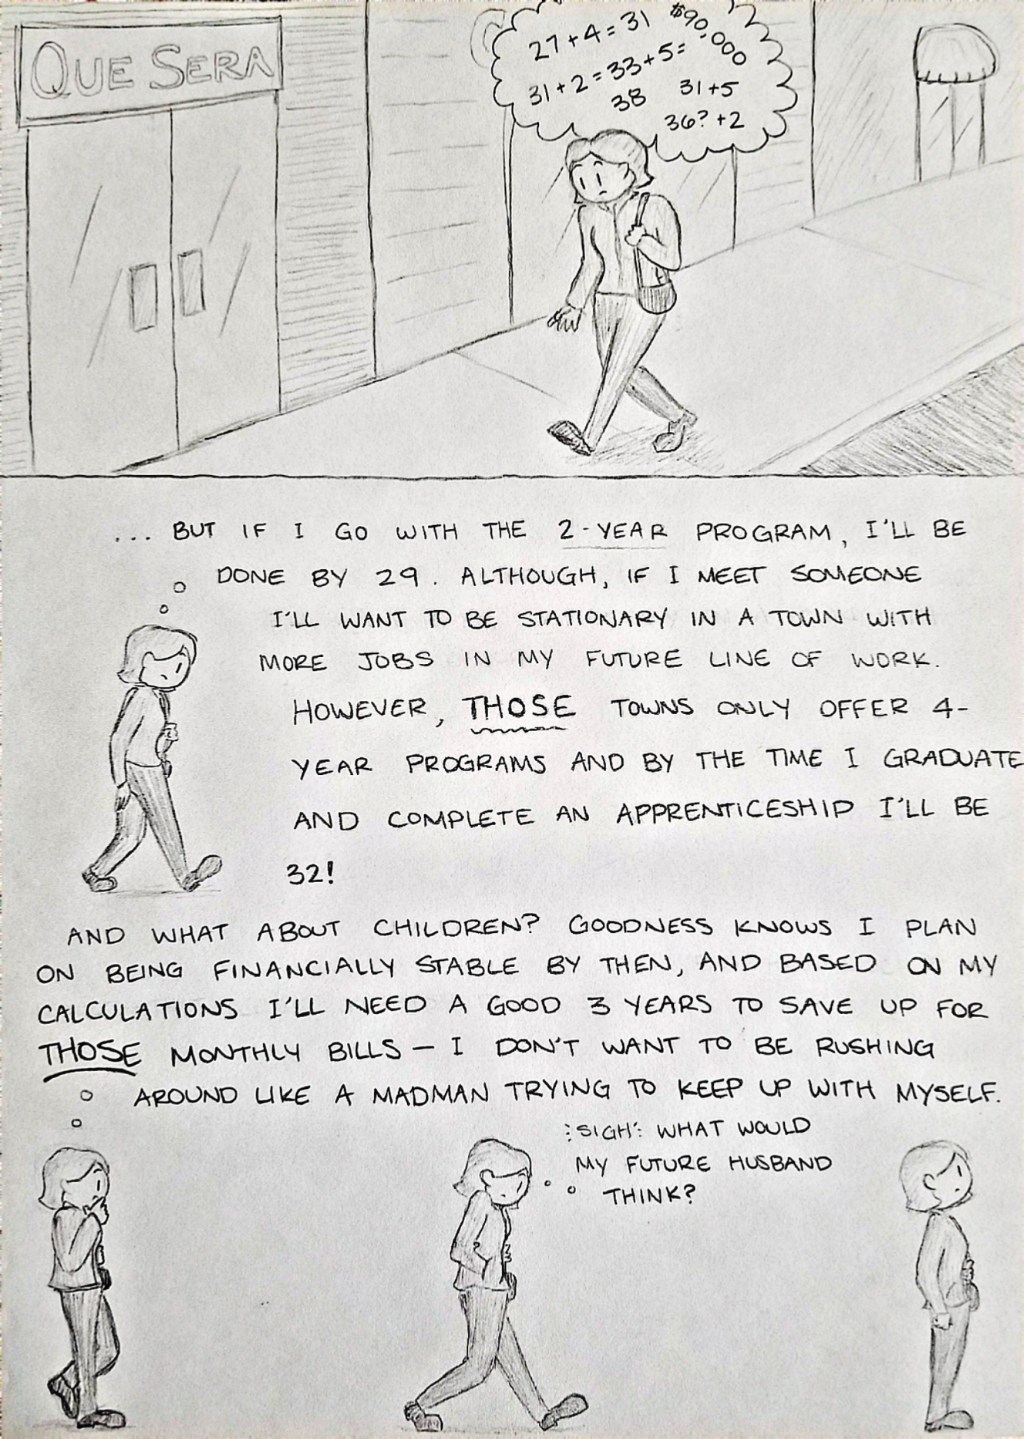 QUE SERA
27+4=31 $90,000
31+2=33+5=
38 31+5
36?+2
... BUT IF I GO WITH THE 2-YEAR PROGRAM, I'LL BE
DONE BY 29. ALTHOUGH, IF I MEET SOMEONE
I'LL WANT TO BE STATIONARY IN A TOWN WITH
MORE JOBS IN MY FUTURE LINE OF WORK.
HOWEVER, THOSE TOWNS ONLY OFFER 4-
YEAR PROGRAMS AND BY THE TIME I GRADUATE
AND COMPLETE AN APPRENTICESHIP I'LL BE
32!
AND WHAT ABOUT CHILDREN? GOODNESS KNOWS I PLAN
ON BEING FINANCIALLY STABLE BY THEN, AND BASED ON MY
CALCULATIONS I'LL NEED A GOOD 3 YEARS TO SAVE UP FOR
THOSE MONTHLY BILLS – I DON'T WANT TO BE RUSHING
AROUND LIKE A MADMAN TRYING TO KEEP UP WITH MYSELF.
:SIGH: WHAT WOULD
MY FUTURE HUSBAND
THINK?